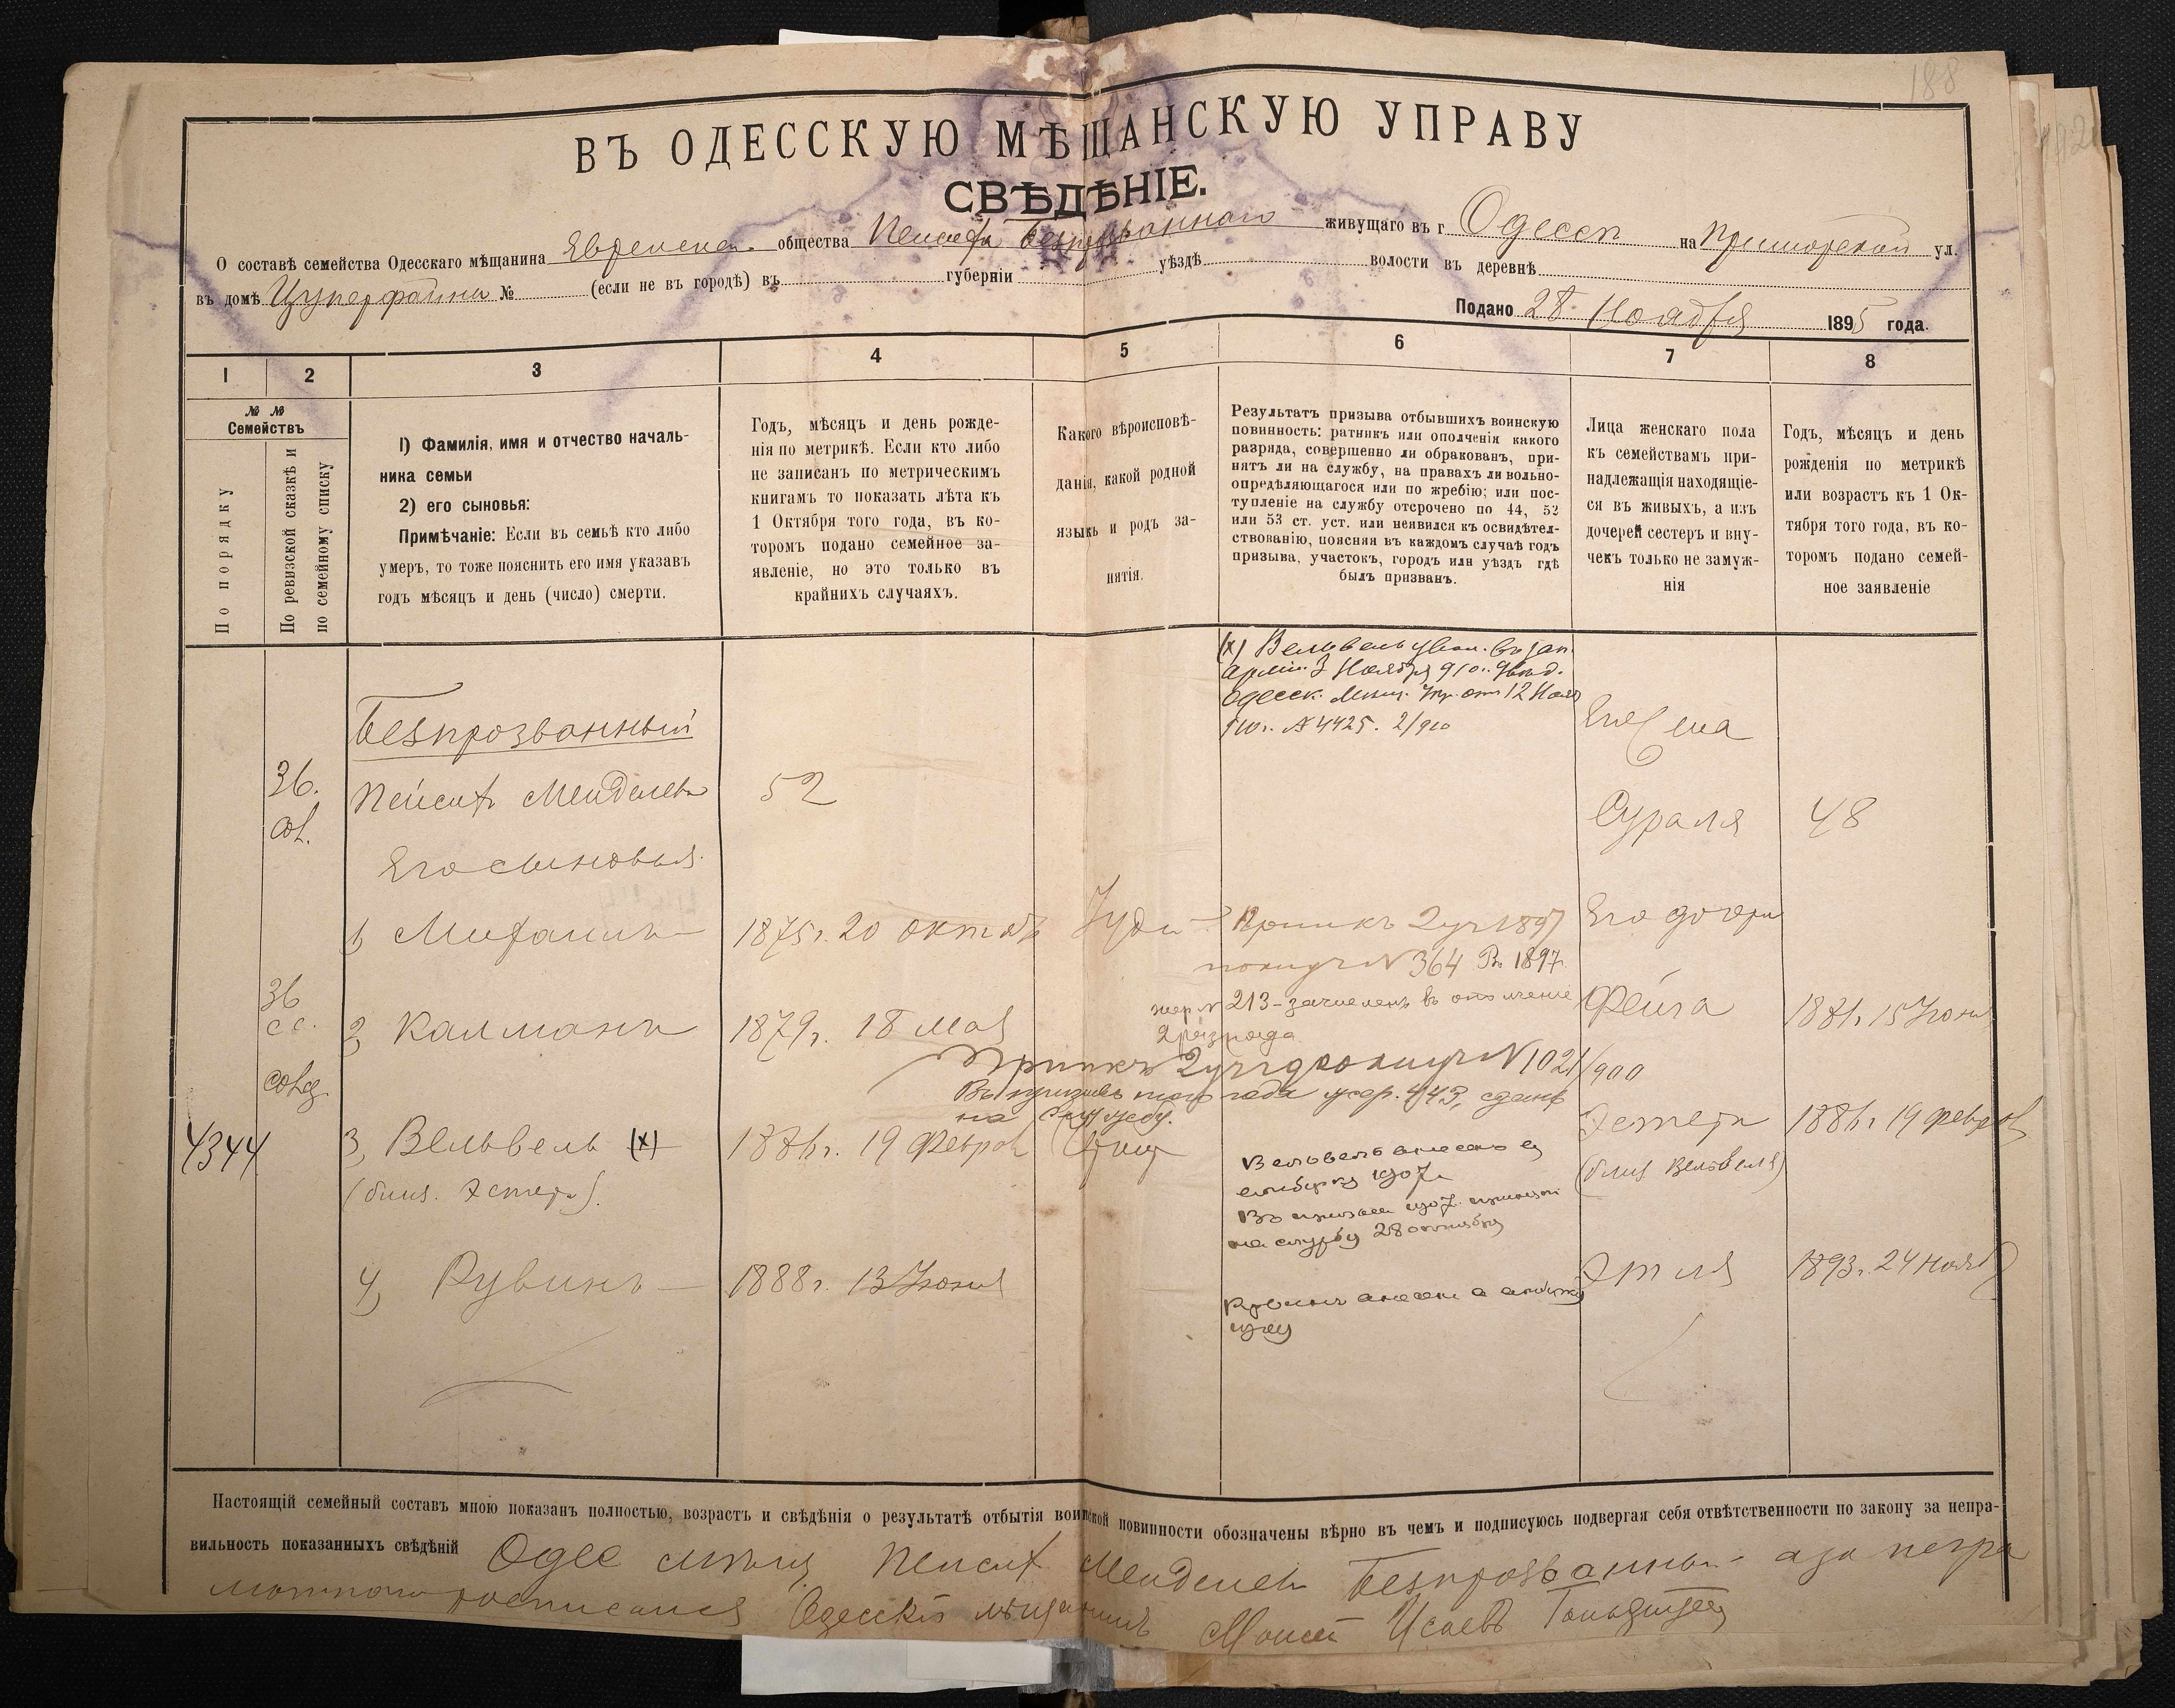 188
ВЪ ОДЕССКУЮ МѢЩАНСКУЮ УПРАВУ
СВѢДѢНІЕ.
О составѣ семейства Одесскаго мѣщанина Еврейска. общества Пейсахъ Безпрозваннаго живущаго въ г Одессѣ на Приморской ул.
въ домѣ Цукерфайна № (если не въ городѣ) въ губерніи уѣздѣ волости въ деревнѣ
Подано 28 Ноября 1895 года.
1 2 3 4 5 6 7 8
№ №
Семействъ
По порядку
По ревизской сказкѣ и
по семейному списку
1) Фамилія, имя и отчество началь-
ника семьи
2) его сыновья:
Примѣчаніе: Если въ семьѣ кто либо
умеръ, то тоже пояснить его имя указавъ
годъ мѣсяцъ и день (число) смерти.
Годъ, мѣсяцъ и день рожде-
нія по метрикѣ. Если кто либо
не записанъ по метрическимъ
книгамъ то показать лѣта къ
1 Октября того года, въ ко-
торомъ подано семейное за-
явленіе, но это только въ
крайнихъ случаяхъ.
Какого вѣроисповѣ-
данія, какой родной
языкъ и родъ за-
нятія.
Результатъ призыва отбывшихъ воинскую
повинность: ратникъ или ополченія какого
разряда, совершенно ли обракованъ, при-
нятъ ли на службу, на правахъ ли вольно-
опредѣляющагося или по жребію; или пос-
тупленіе на службу отсрочено по 44, 52
или 53 ст. уст. или неявился къ освидѣтел-
ствованію, поясняя въ каждомъ случаѣ годъ
призыва, участокъ, городъ или уѣздъ гдѣ
былъ призванъ.
Лица женскаго пола
къ семействамъ при-
надлежащія находящіе-
ся въ живыхъ, а изъ
дочерей сестеръ и вну-
чекъ только не замуж-
нія
Годъ, мѣсяцъ и день
рожденія по метрикѣ
или возрастъ къ 1 Ок-
тября того года, въ ко-
торомъ подано семей-
ное заявленіе
(х) Вельвель увол. въ зап.
арміи 3 Ноября 910 г. увѣд.
Одесск. Мѣщ. Упр. отъ 12 Нояб
910 г. № 4425. 2/910
Безпрозванный
Его жена
36. Пейсахъ Менделевъ 52
Сураля 48
Его сыновья
1) Мифаилъ 1875 г. 20 октяб Іуди Припкъ 2 уч 1897
№ 364 1897
Его дочери
36
2) Калманъ 1879 г. 18 Мая
жер № 213 - зачисленъ въ ополченіе
2 разряда
Фейга 1881 г. 15 Іюня
Припкъ 2 уч № 1021/900
Въ призывъ того года жер. 443, сданъ
на службу.
4344 3) Вельвель (х) 1886 г. 19 Февраля
(близ. Эстеръ).
Вельвель внесенъ въ
1907 г.
Въ призывъ 1907 принятъ
на службу 28 октября
Эстеръ 1886 г. 19 февраля
(близ Вельвеля)
4) Рувинъ 1888 г. 13 Іюня
Рувинъ внесенъ въ
Этля 1893 г. 24 Нояб
Настоящій семейный составъ мною показанъ полностью, возрастъ и свѣдѣнія о результатѣ отбытія воинской повинности обозначены вѣрно въ чемъ и подписуюсь подвергая себя отвѣтственности по закону за непра-
вильность показанныхъ свѣдѣній Одес мѣщ Пейсахъ Менделевъ Безпрозванный а за негра
мотнаго росписался Одесскій мѣщанинъ Моисей Исаевъ